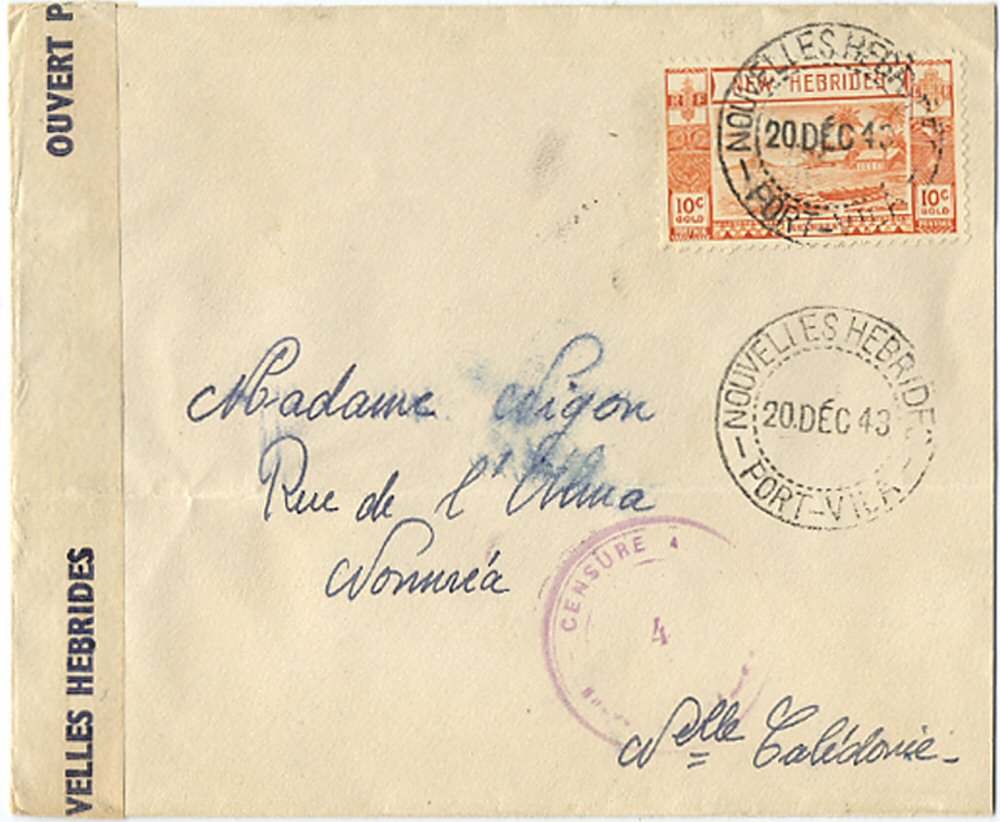 OUVERT P
VELLES HEBRIDES
NEW HEBRIDES
RF
10c GOLD
10c GOLD
NOUVELLES HEBRIDES
20.DÉC 43
PORT-VILA
Madame Nigon
Rue de l'Alma
Nouméa
Nelle Calédonie
NOUVELLES HEBRIDES
20.DÉC 43
PORT-VILA
CENSURE
4